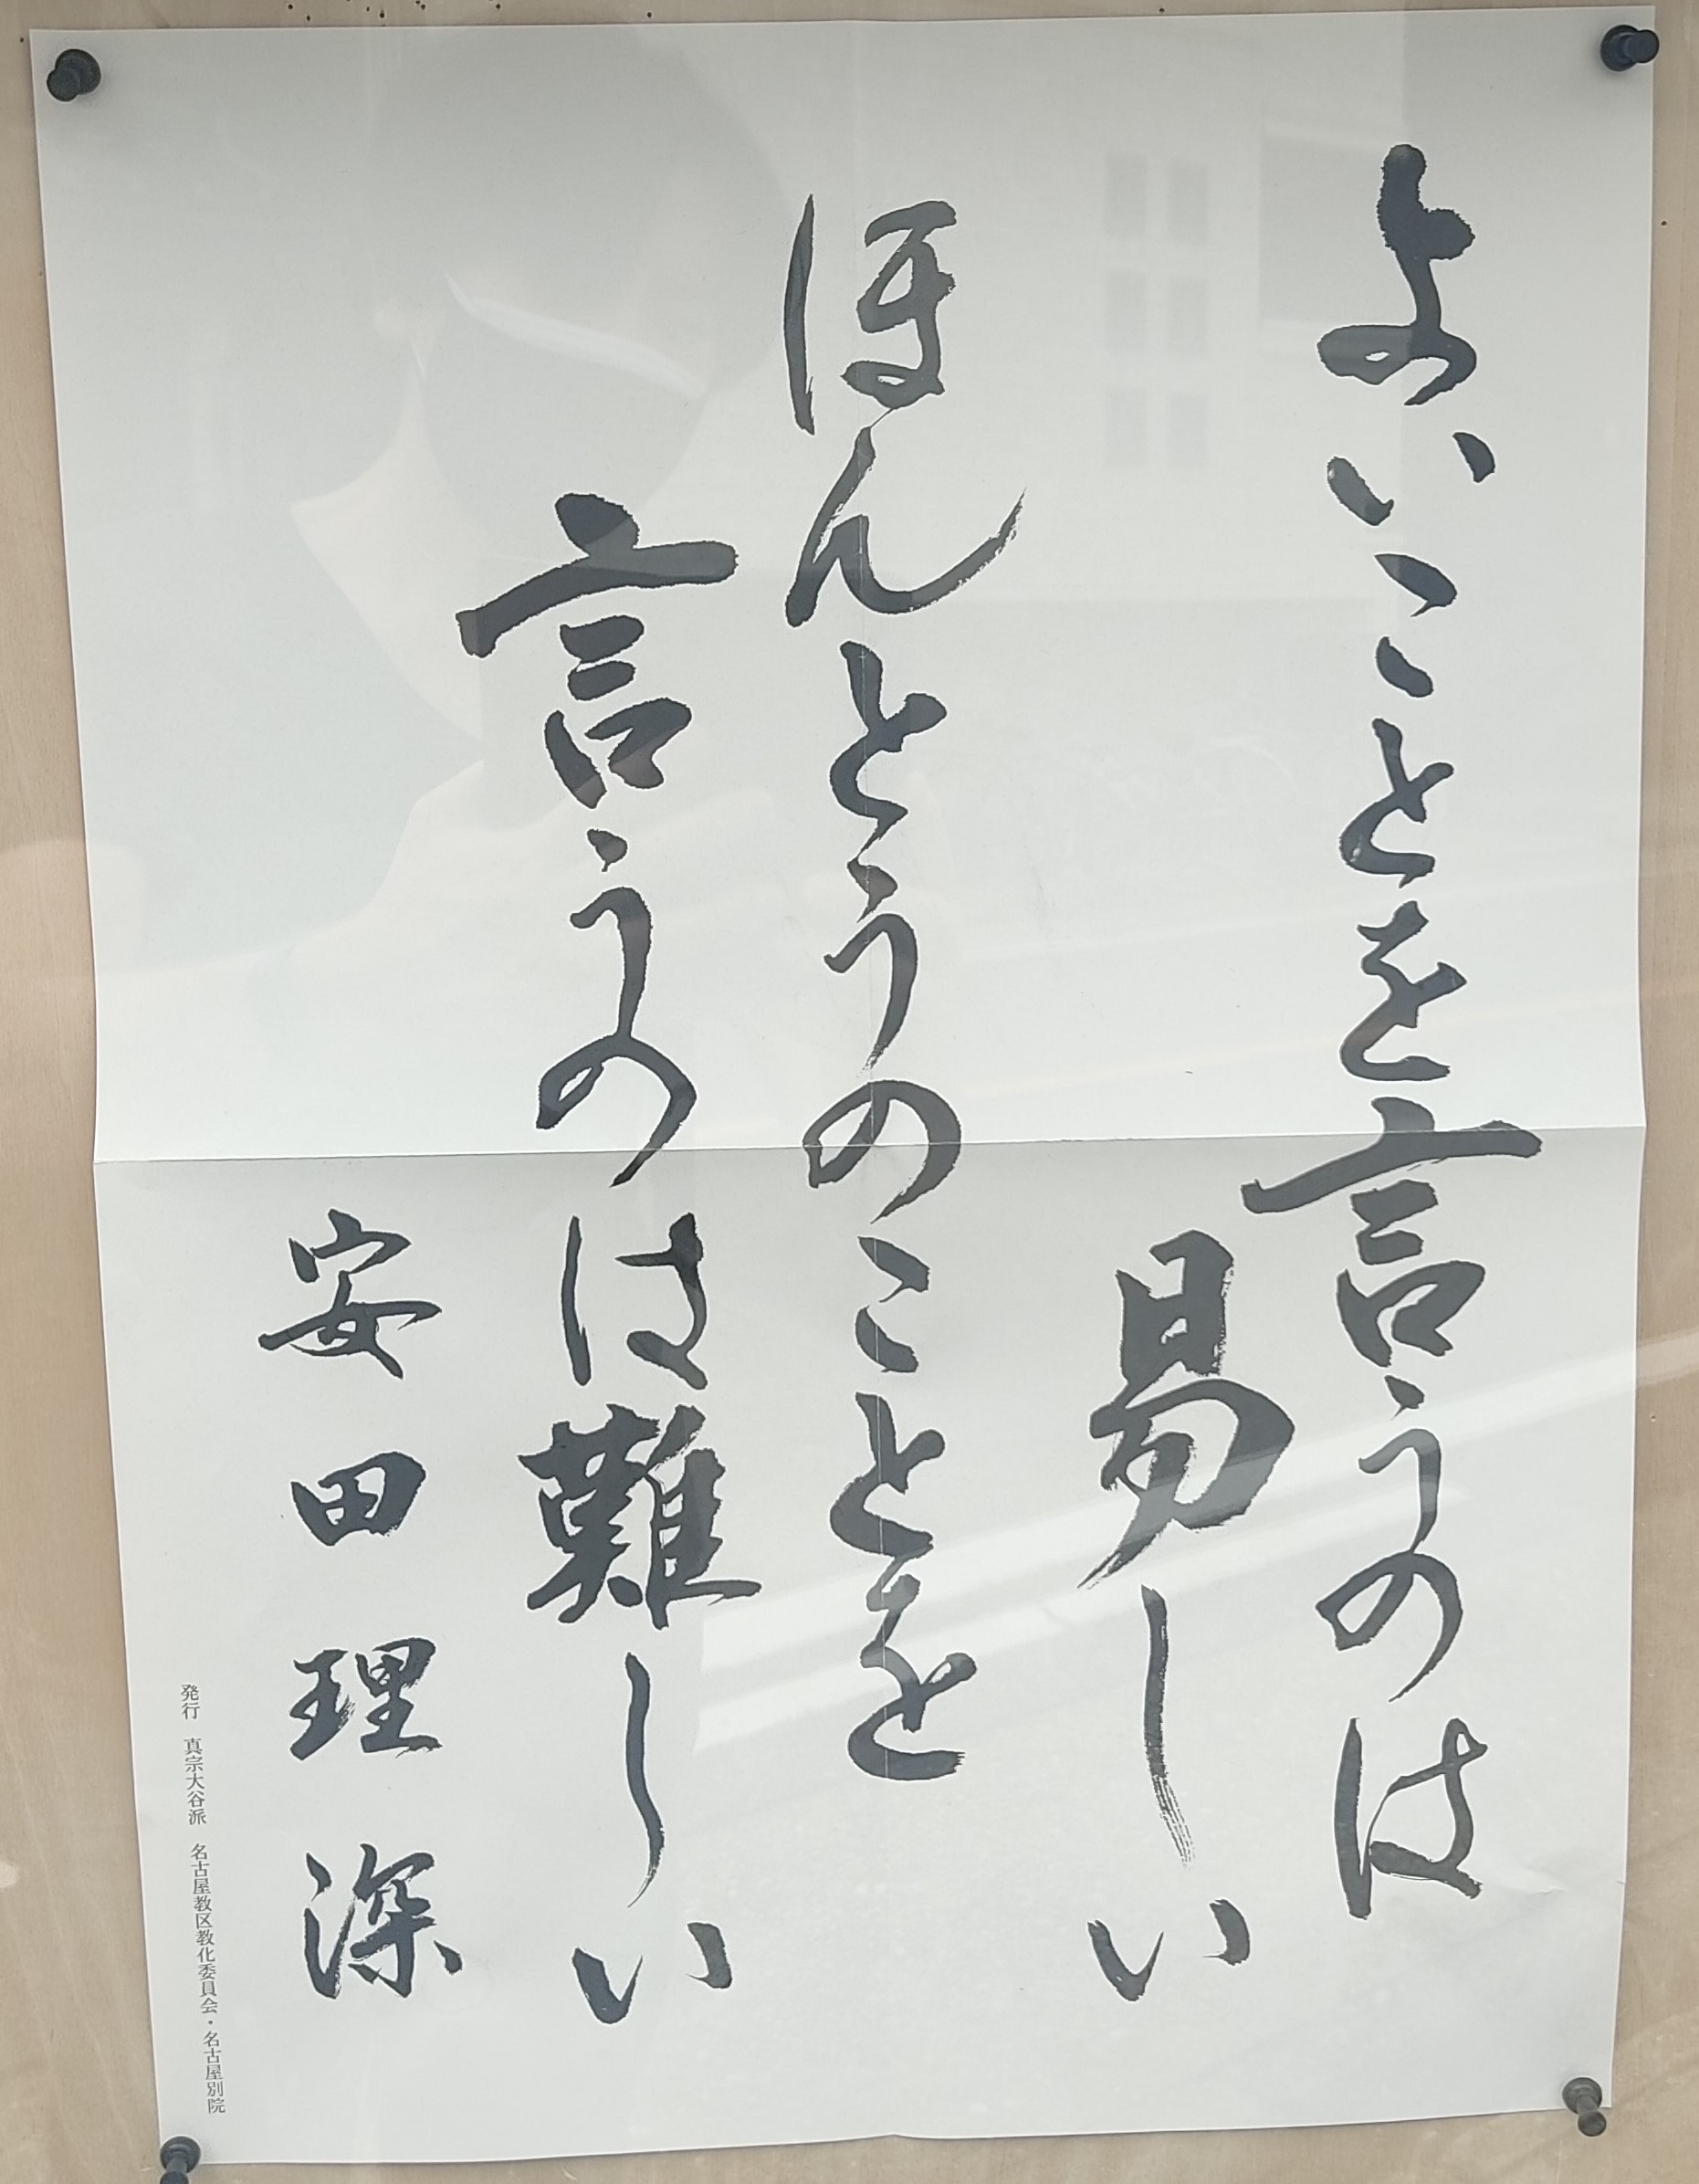 よいことを言うのは
易しい
ほんとうのことを
言うのは難しい
安田理深
発行　真宗大谷派　名古屋教区教化委員会・名古屋別院